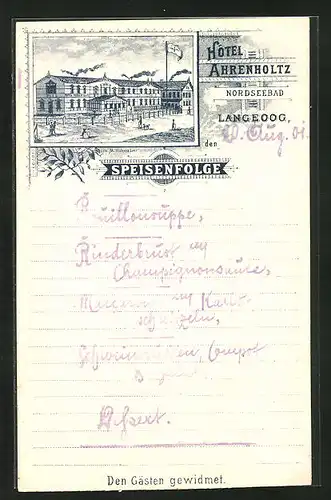 HOTEL
AHRENHOLTZ
NORDSEEBAD
LANGEOOG,
den 20. Aug. 01.
SPEISENFOLGE
Bouillonsuppe,
Rinderbrust
Champignonsauce,
Kalb-
schnitzeln,
Schweinerücken, Compot
Dessert.
Den Gästen gewidmet.